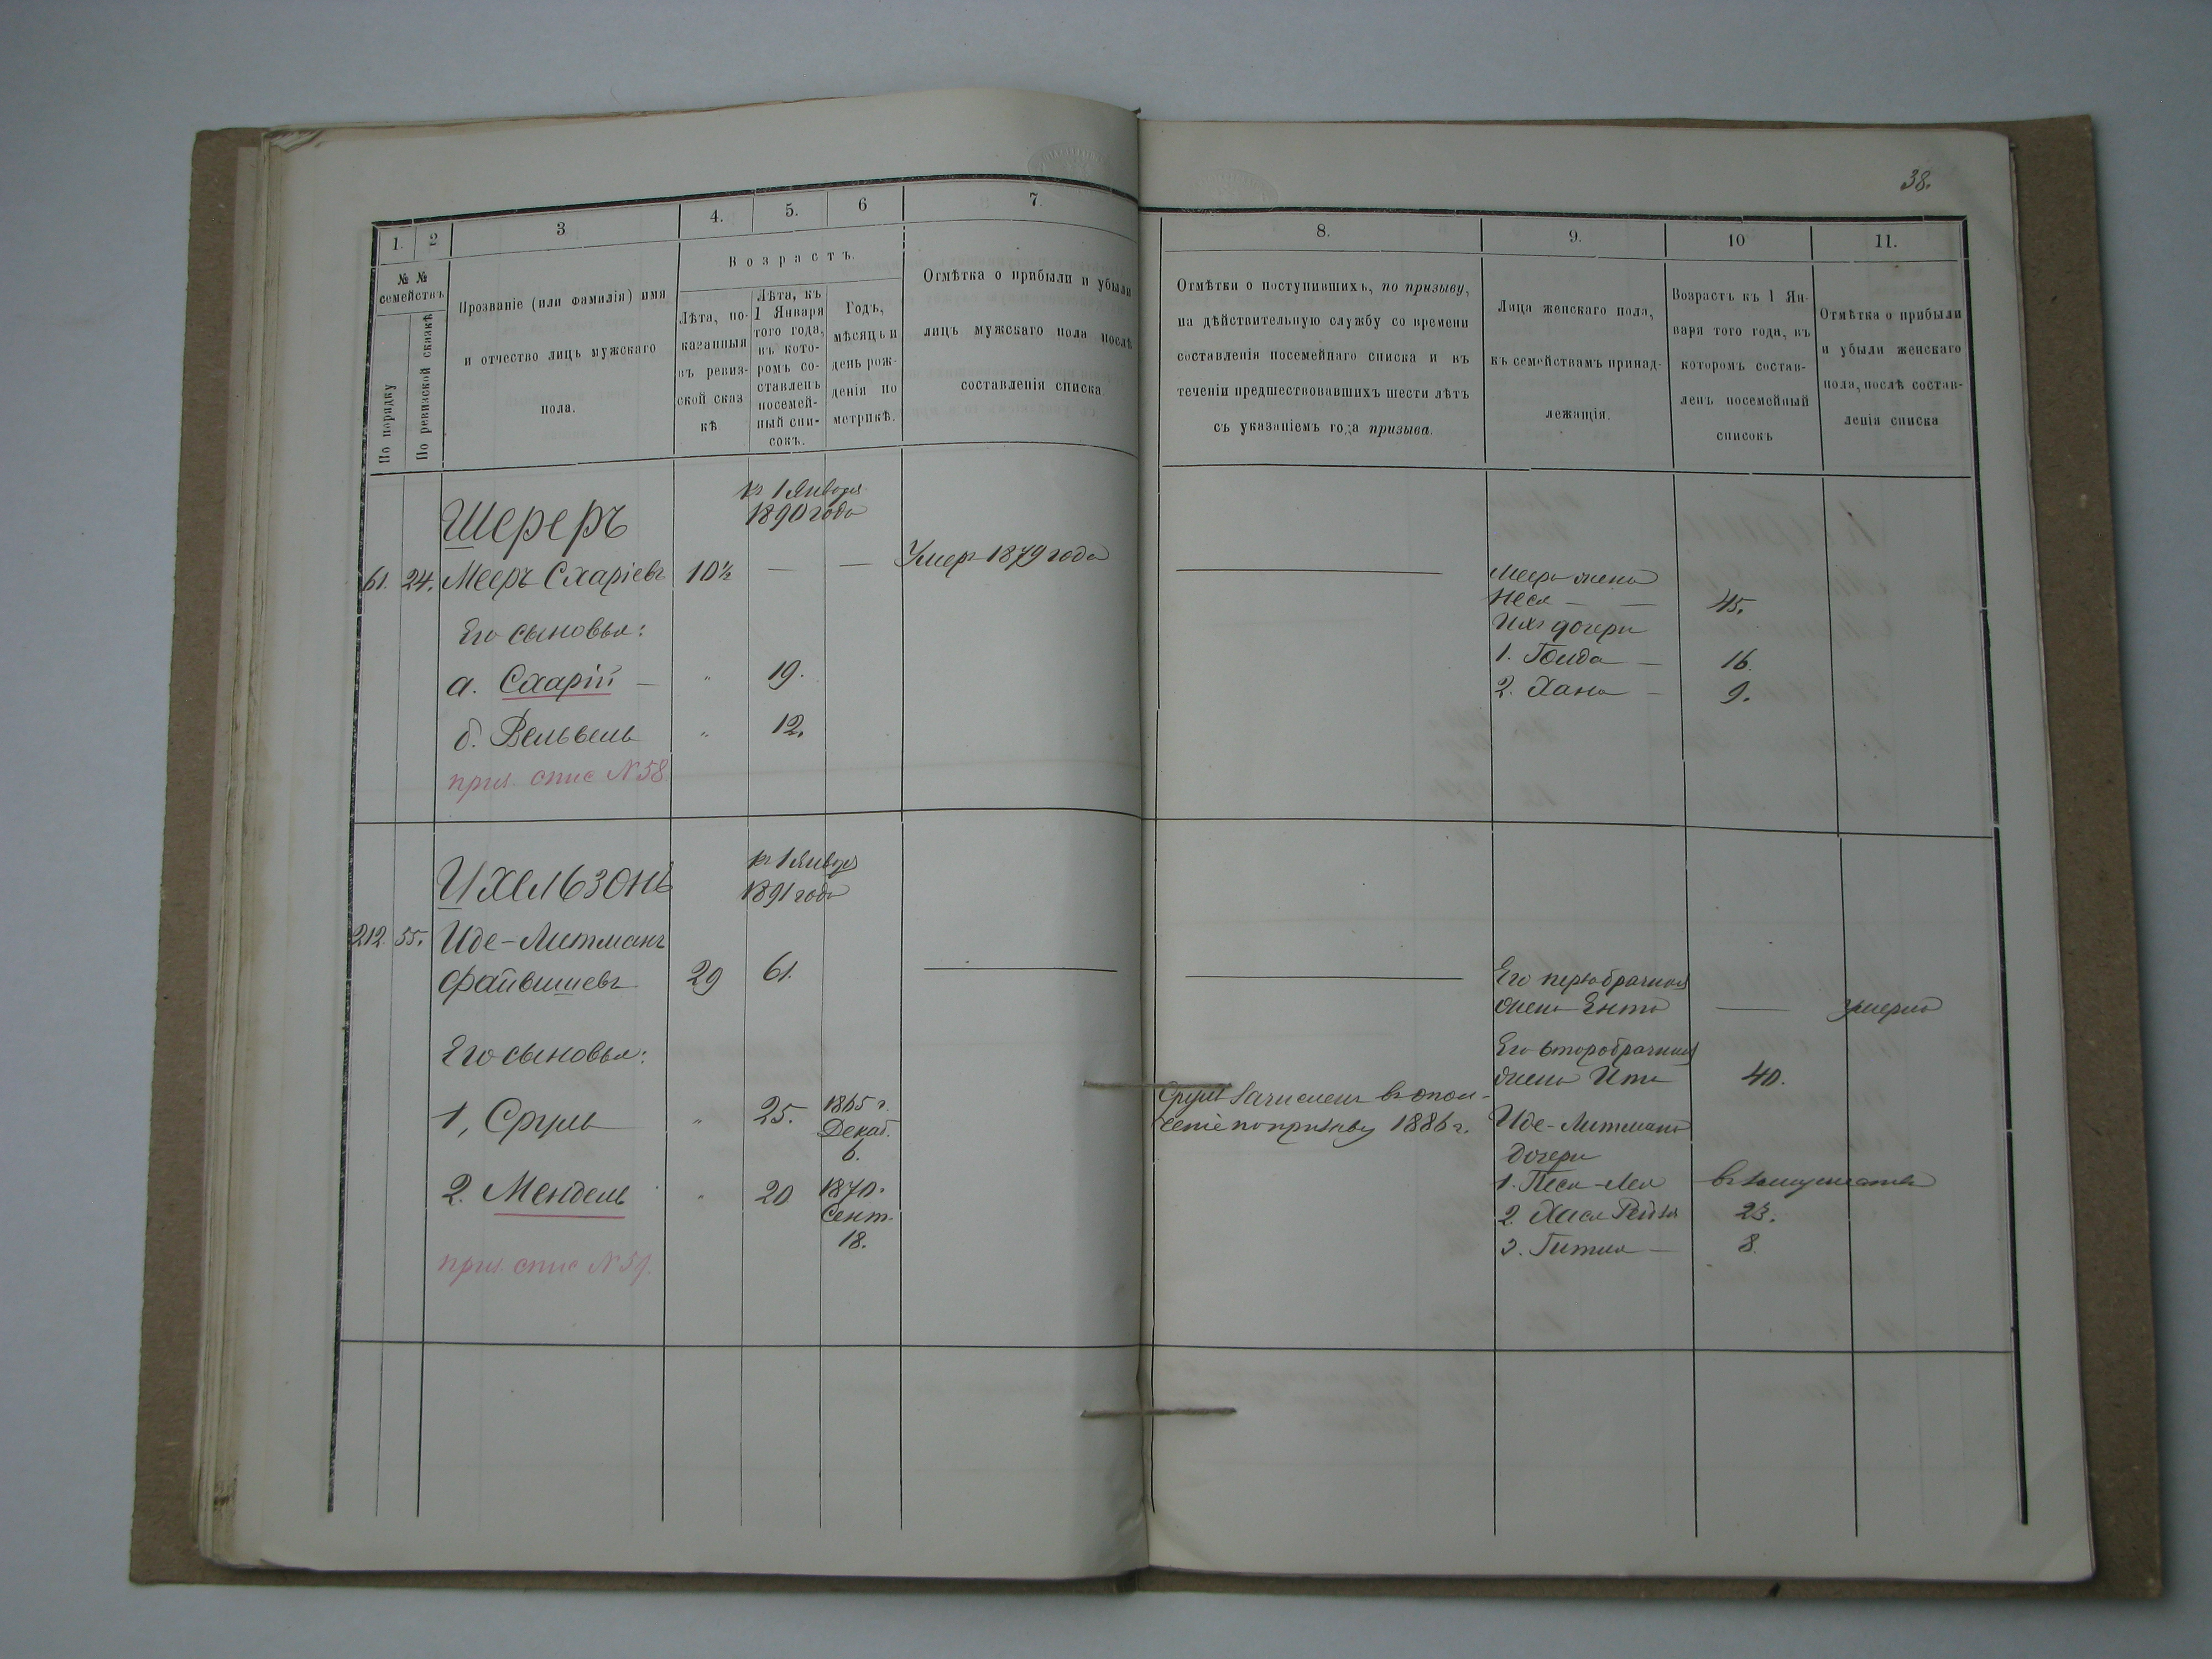 38.
1.
2
3
4.
5.
6
7.
8.
9.
10
11.
№ №
семействъ
По порядку
По ревизской сказкѣ
Прозваніе (или фамилія) имя
и отчество лицъ мужскаго
пола.
Возрастъ.
Лѣта, по-
казанныя
въ ревиз-
ской сказ
кѣ
Лѣта, къ
1 Января
того года,
въ кото-
ромъ со-
ставленъ
посемей-
ный спи-
сокъ.
Годъ,
мѣсяцъ и
день рож-
денія по
метрикѣ.
Отмѣтка о прибыли и убыли
лицъ мужскаго пола послѣ
составленія списка.
Отмѣтки о поступившихъ, по призыву,
на дѣйствительную службу со времени
составленія посемейнаго списка и въ
теченіи предшествовавшихъ шести лѣтъ
съ указаніемъ года призыва.
Лица женскаго пола,
къ семействамъ принад-
лежащія.
Возрастъ къ 1 Ян-
варя того года, въ
которомъ состав-
ленъ посемейный
списокъ
Отмѣтка о прибыли
и убыли женскаго
пола, послѣ состав-
ленія списка
Шереръ
къ 1 Января
1890 года
61. 24. Мееръ Схаріевъ 10½ — — Умеръ 1879 года
Его сыновья:
а. Схарій — " 19.
б. Вельвель " 12.
прил. спис N 58
Меера жена
Неся — — 45.
Ихъ дочери
1. Голда — 16.
2. Хана — 9.
Ихельзонъ
къ 1 Января
1891 года
212. 55. Иде-Литманъ
Файвишевъ 29 61.
Его сыновья:
1, Сруль " 25. 1865 г.
Декаб.
6.
2. Мендель " 20 1870.
Сент.
18.
прил. спис N 59.
Сруль зачисленъ въ опол-
ченіе по призыву 1886 г.
Его первобрачная
жена Ента — умерла
Его второбрачная
жена Ита 40.
Иде-Литмана
дочери
1. Песя-Лея въ замужествѣ
2. Хася Рейза 23.
3. Гитля — 8.